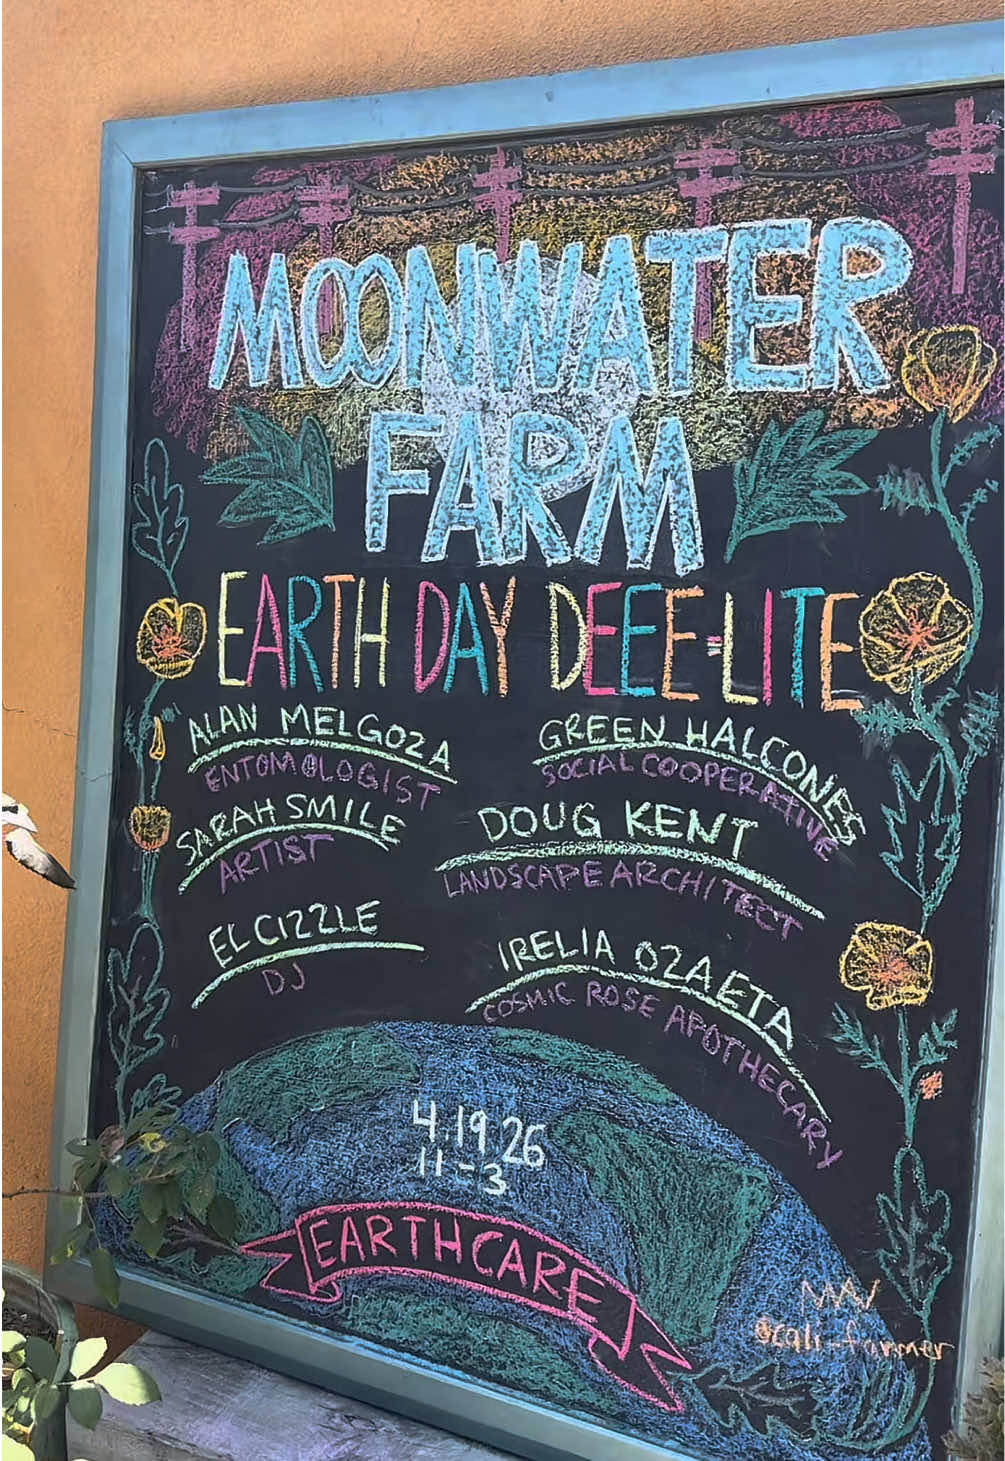 MOONWATER
FARM
EARTH DAY DEEE-LITE
ALAN MELGOZA
ENTOMOLOGIST
SARAH SMILE
ARTIST
EL CIZZLE
DJ
GREEN HALCONES
SOCIAL COOPERATIVE
DOUG KENT
LANDSCAPE ARCHITECT
IRELIA OZAETA
COSMIC ROSE APOTHECARY
4.19.26
11-3
EARTHCARE
@cali-farmer